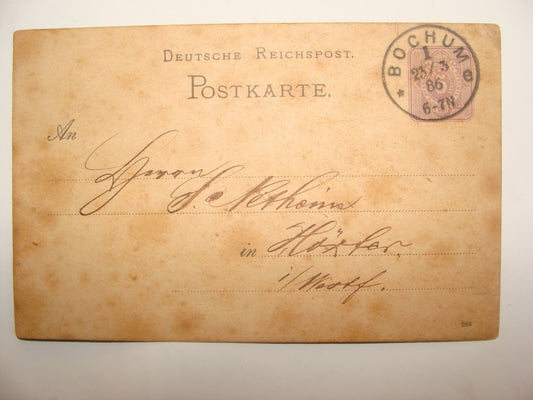 DEUTSCHE REICHSPOST.
POSTKARTE.
BOCHUM
1
23/3
86
6-7N
An
Herrn
S. Netheim
in Höxter.
i/Westf.